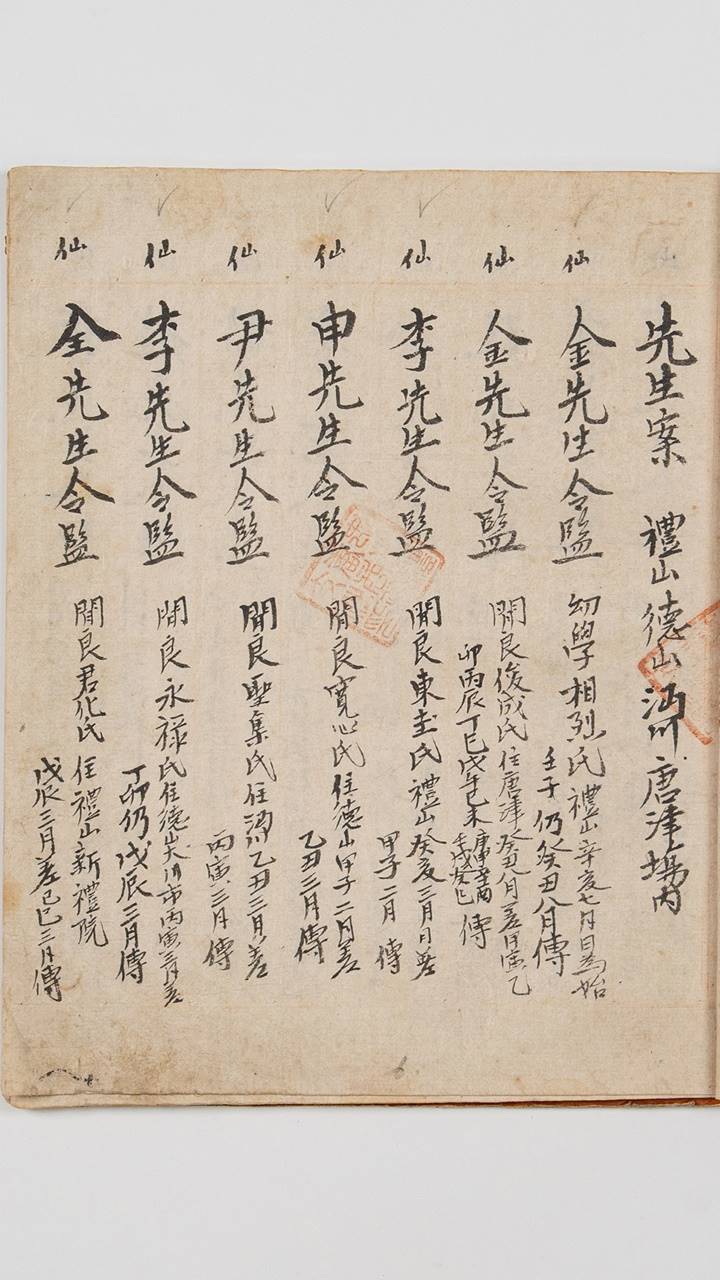 先生案 禮山 德山 沔川 唐津 場內
仙 金先生令監 幼學相烈氏 禮山 辛亥七月日為始
壬子仍癸丑八月傳
仙 金先生令監 閒良俊成氏 住唐津 癸丑八月差甲寅乙
卯丙辰丁巳戊午己未庚申辛酉壬戌癸亥 傳
仙 李先生令監 閒良東圭氏 禮山 癸亥三月日差
甲子二月 傳
仙 申先生令監 閒良寬心氏 住德山 甲子二月差
乙丑三月傳
仙 尹先生令監 閒良聖集氏 住沔川 乙丑三月差
丙寅三月傳
仙 李先生令監 閒良永祿氏 住德山 大川市 丙寅三月差
丁卯仍戊辰三月傳
仙 全先生令監 閒良君化氏 住禮山新禮院
戊辰三月差己巳三月傳